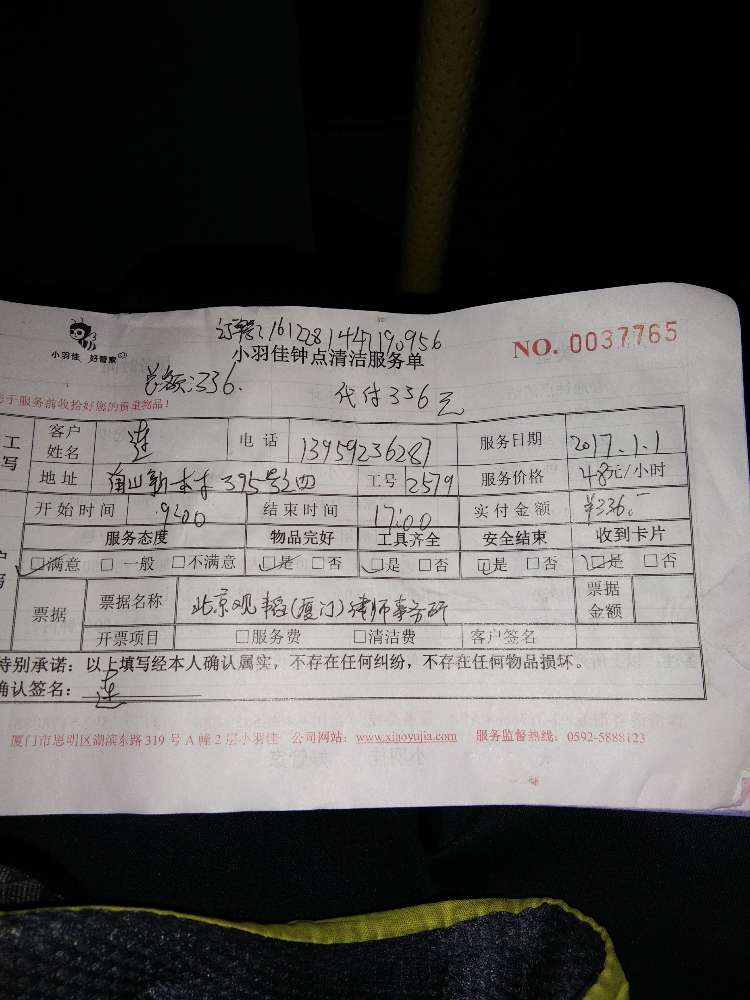 161228144719095​6
小羽佳 好管家
小羽佳钟点清洁服务单
NO. 0037765
总额:336.
代付336元
于服务前收拾好您的贵重物品!
工 客户姓名 连 电话 13959236287 服务日期 2017.1.1
写 地址 395号之四 工号 2579 服务价格 48元/小时
开始时间 9:00 结束时间 17:00 实付金额 ¥336.-
服务态度 物品完好 工具齐全 安全结束 收到卡片
□满意 □一般 □不满意 □是 □否 □是 □否 □是 □否 □是 □否
票据 票据名称 北京观韬(厦门)律师事务所 票据金额
开票项目 □服务费 □清洁费 客户签名
特别承诺：以上填写经本人确认属实，不存在任何纠纷，不存在任何物品损坏。
确认签名: 连
厦门市思明区湖滨东路319号A幢2层小羽佳 公司网站: www.xiaoyujia.com 服务监督热线: 0592-5888123